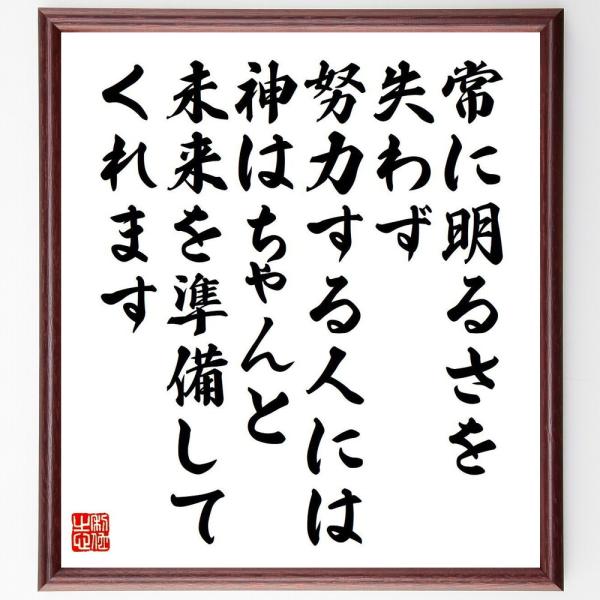 常に明るさを
失わず
努力する人には
神はちゃんと
未来を準備して
くれます